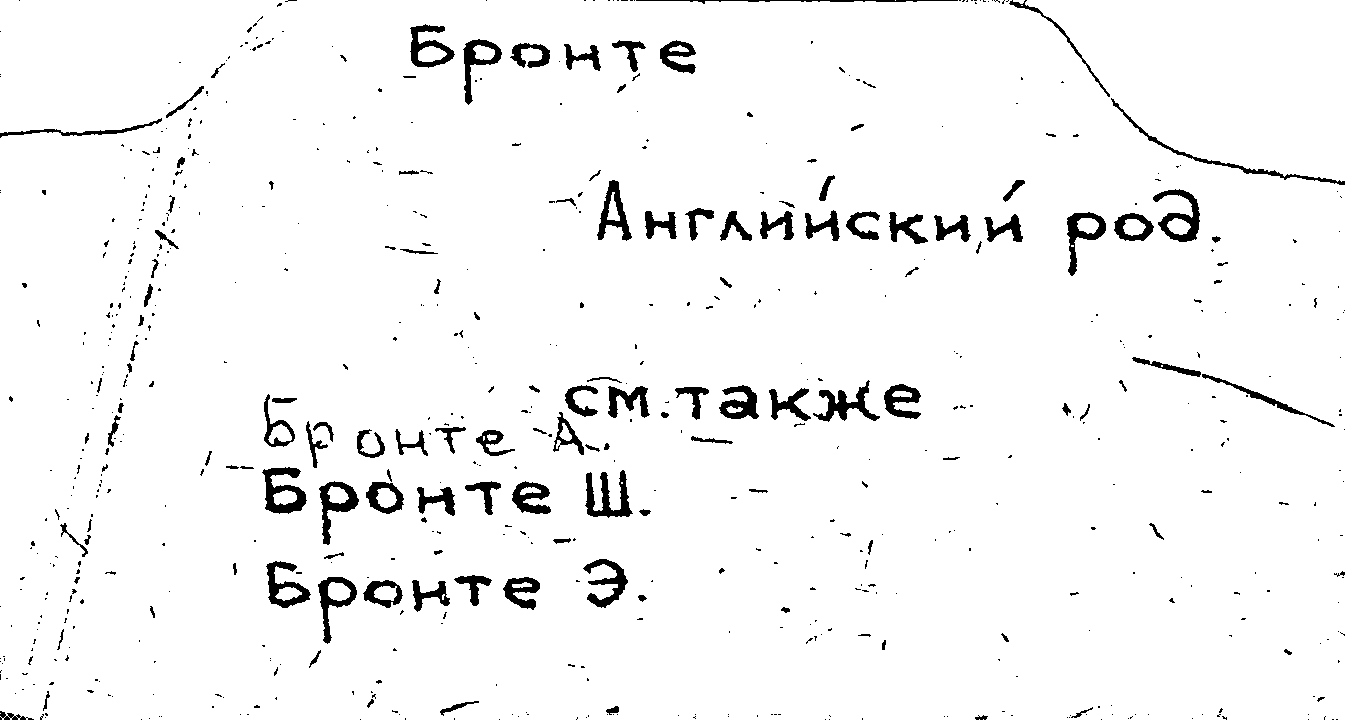 Бронте
Английский род.
см. также
Бронте А.
Бронте Ш.
Бронте Э.